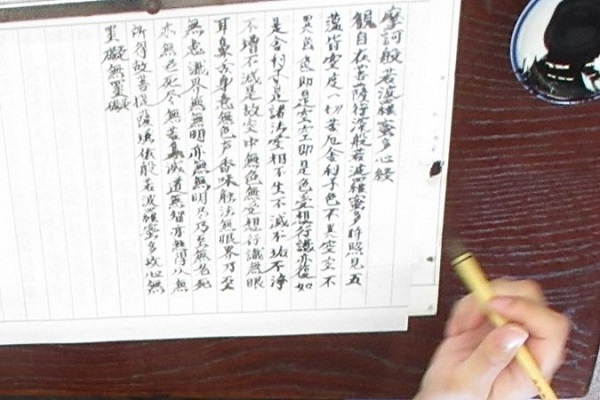 摩訶般若波羅蜜多心経
観自在菩薩行深般若波羅蜜多時照見五
蘊皆空度一切苦厄舎利子色不異空空不
異色色即是空空即是色受想行識亦復如
是舎利子是諸法空相不生不滅不垢不浄
不増不減是故空中無色無受想行識無眼
耳鼻舌身意無色声香味触法無眼界乃至
無意識界無無明亦無無明尽乃至無老死
亦無老死尽無苦集滅道無智亦無得以無
所得故菩提薩埵依般若波羅蜜多故心無
罣礙無罣礙